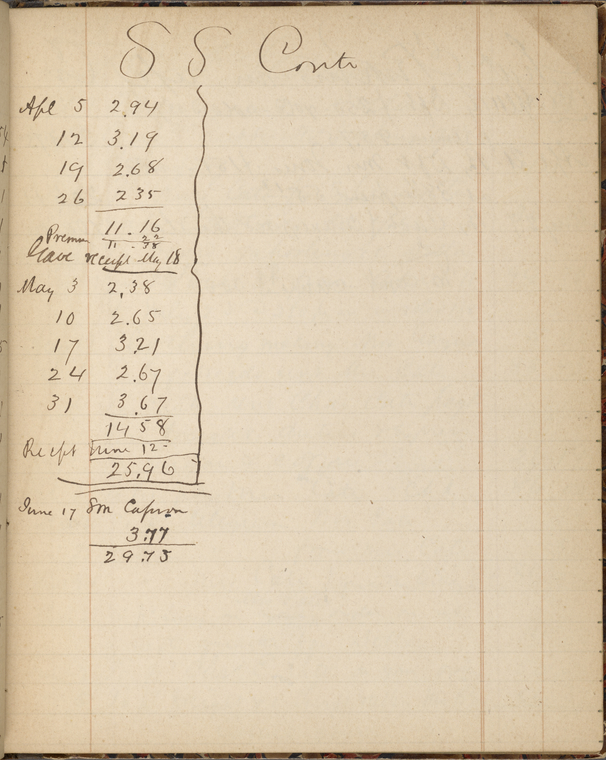 S S Contr
Apl 5 2.94
12 3.19
19 2.68
26 235
11.16
Premm .22
11.38
Gave receipt May 18
May 3 2.38
10 2.65
17 3.21
24 2.67
31 3.67
14 58
Receipt June 12
25.96
June 17 SM Capron
3.77
29.73